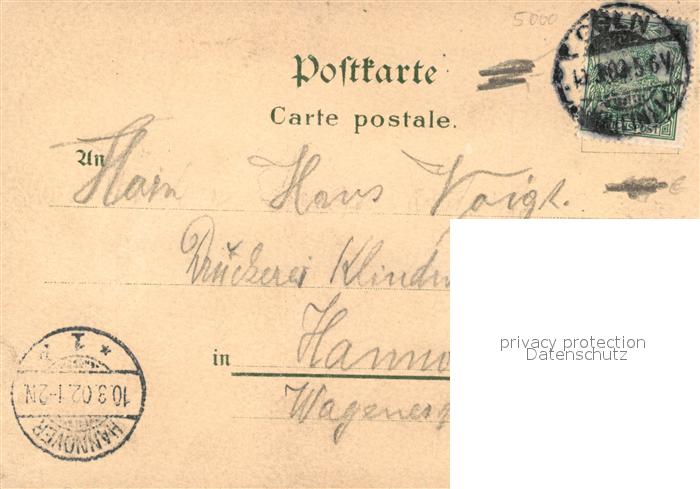 5000
CÖLN
5-6V
REICHSPOST
Postkarte
Carte postale.
An Herrn Hans Voigt.
Druckerei Klindw
in Hanno
privacy protection
Datenschutz
* 1 *
10.3.02.1-2N.
HANNOVER